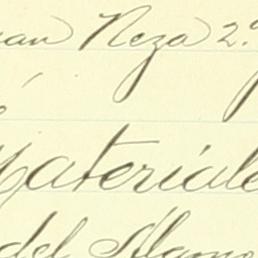 uan Neza 2.º y
Materiale
del Alamo